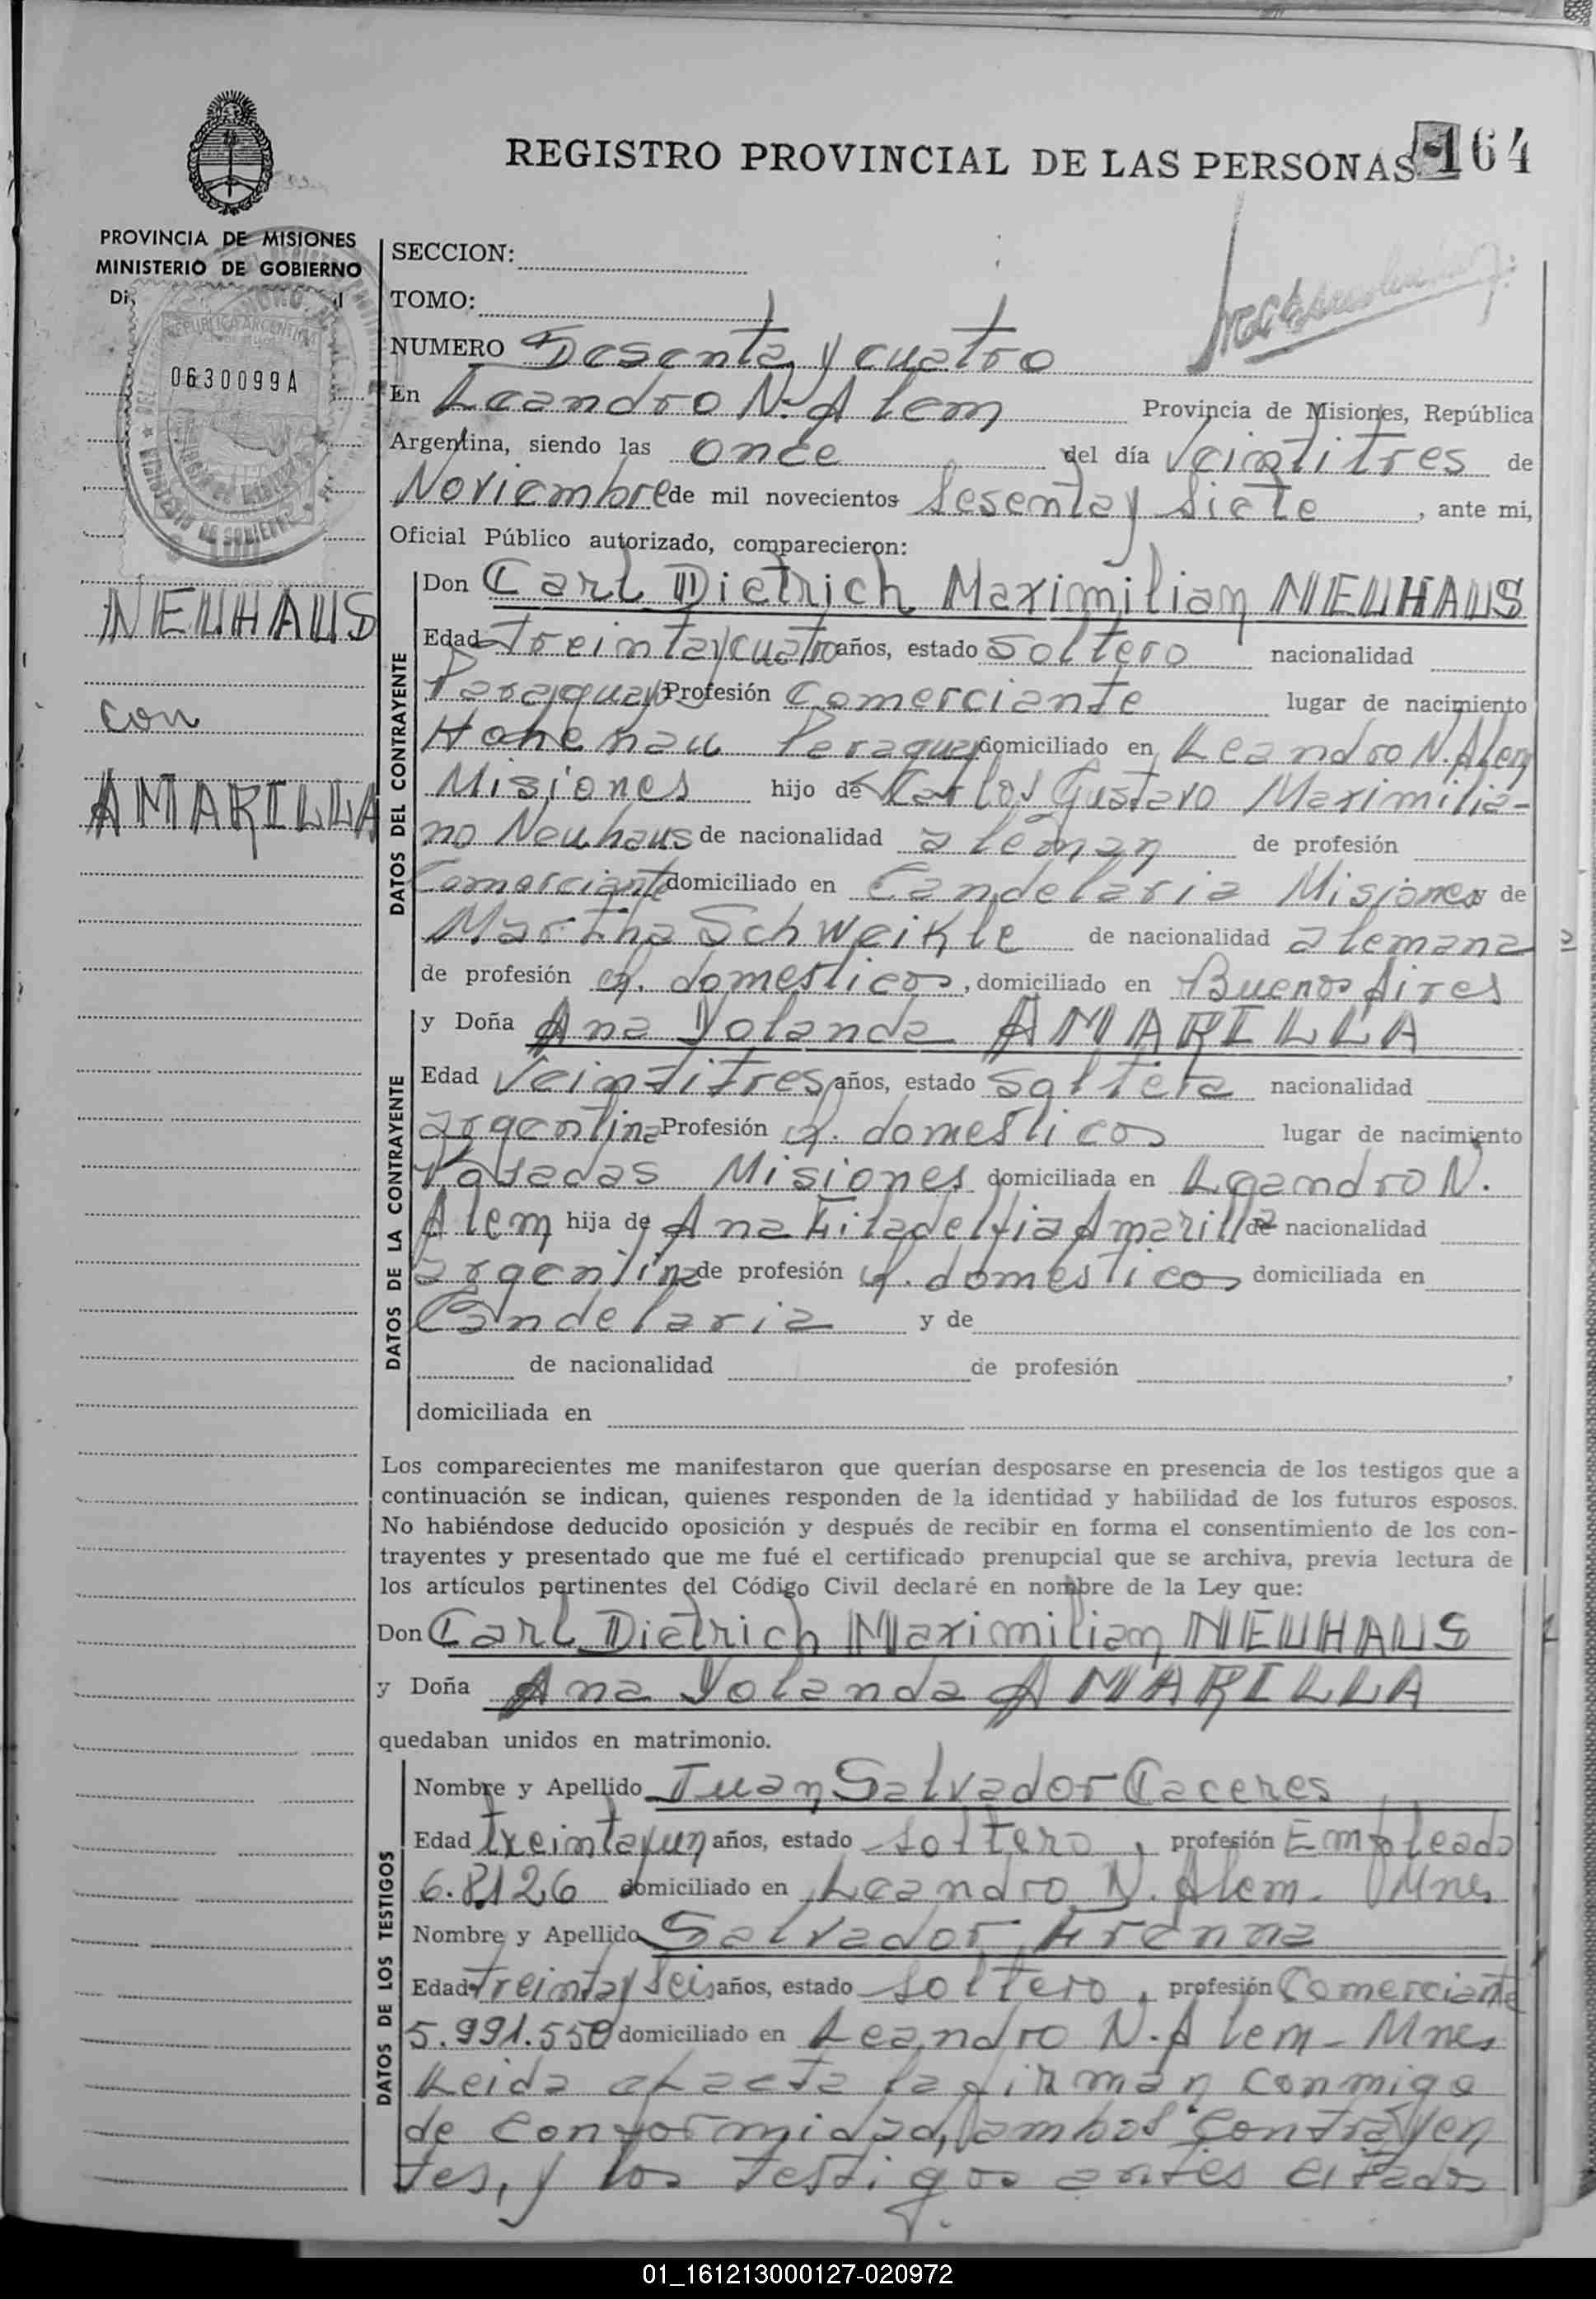 REGISTRO PROVINCIAL DE LAS PERSONAS 164
PROVINCIA DE MISIONES
MINISTERIO DE GOBIERNO
0630099A
NEUHAUS
con
AMARILLA
SECCION:
TOMO:
NUMERO Sesenta y cuatro
En Leandro N. Alem Provincia de Misiones, República
Argentina, siendo las once del día Veintitres de
Noviembre de mil novecientos Sesenta y Siete, ante mi,
Oficial Público autorizado, comparecieron:
DATOS DEL CONTRAYENTE
Don Carl Dietrich Maximilian NEUHAUS
Edad Treinta y cuatro años, estado Soltero nacionalidad
Paraguayo Profesión Comerciante lugar de nacimiento
Hohenau Paraguay domiciliado en Leandro N. Alem
Misiones hijo de Carlos Gustavo Maximilia-
no Neuhaus de nacionalidad aleman de profesión
Comerciante domiciliado en Candelaria Misiones y de
Martha Schweikle de nacionalidad alemana
de profesión q. domesticos, domiciliado en Buenos Aires
DATOS DE LA CONTRAYENTE
y Doña Ana Yolanda AMARILLA
Edad Veintitres años, estado Soltera nacionalidad
argentina Profesión q. domesticos lugar de nacimiento
Posadas Misiones domiciliada en Leandro N.
Alem hija de Ana Filadelfia Amarilla de nacionalidad
argentina de profesión q. domesticos domiciliada en
Candelaria y de
de nacionalidad de profesión ,
domiciliada en
Los comparecientes me manifestaron que querían desposarse en presencia de los testigos que a
continuación se indican, quienes responden de la identidad y habilidad de los futuros esposos.
No habiéndose deducido oposición y después de recibir en forma el consentimiento de los con-
trayentes y presentado que me fué el certificado prenupcial que se archiva, previa lectura de
los artículos pertinentes del Código Civil declaré en nombre de la Ley que:
Don Carl Dietrich Maximilian NEUHAUS
y Doña Ana Yolanda AMARILLA
quedaban unidos en matrimonio.
DATOS DE LOS TESTIGOS
Nombre y Apellido Juan Salvador Caceres
Edad treinta y un años, estado Soltero, profesión Empleado
6.8126 domiciliado en Leandro N. Alem - Mnes
Nombre y Apellido Salvador Frenna
Edad Treinta y Seis años, estado Soltero, profesión Comerciante
5.991.550 domiciliado en Leandro N. Alem - Mnes
Leida el acta la firman conmigo
de conformidad, ambos contrayen
tes, y los testigos antes citados
01_161213000127-020972